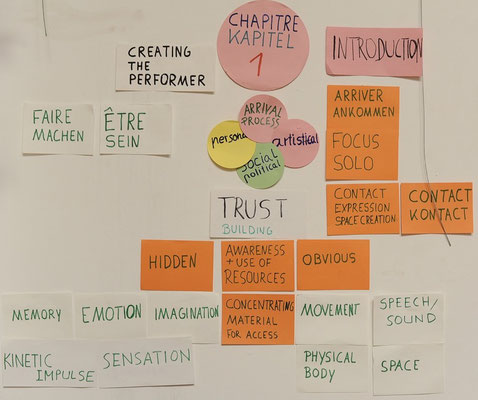 CHAPITRE
KAPITEL
1
INTRODUCTION
CREATING
THE
PERFORMER
FAIRE
MACHEN
ÊTRE
SEIN
ARRIVAL
PROCESS
personal
artistical
social
political
ARRIVER
ANKOMMEN
FOCUS
SOLO
TRUST
BUILDING
CONTACT
EXPRESSION
SPACE CREATION
CONTACT
KONTACT
HIDDEN
AWARENESS
+ USE OF
RESOURCES
OBVIOUS
MEMORY
EMOTION
IMAGINATION
CONCENTRATING
MATERIAL
FOR ACCESS
MOVEMENT
SPEECH/
SOUND
KINETIC
IMPULSE
SENSATION
PHYSICAL
BODY
SPACE